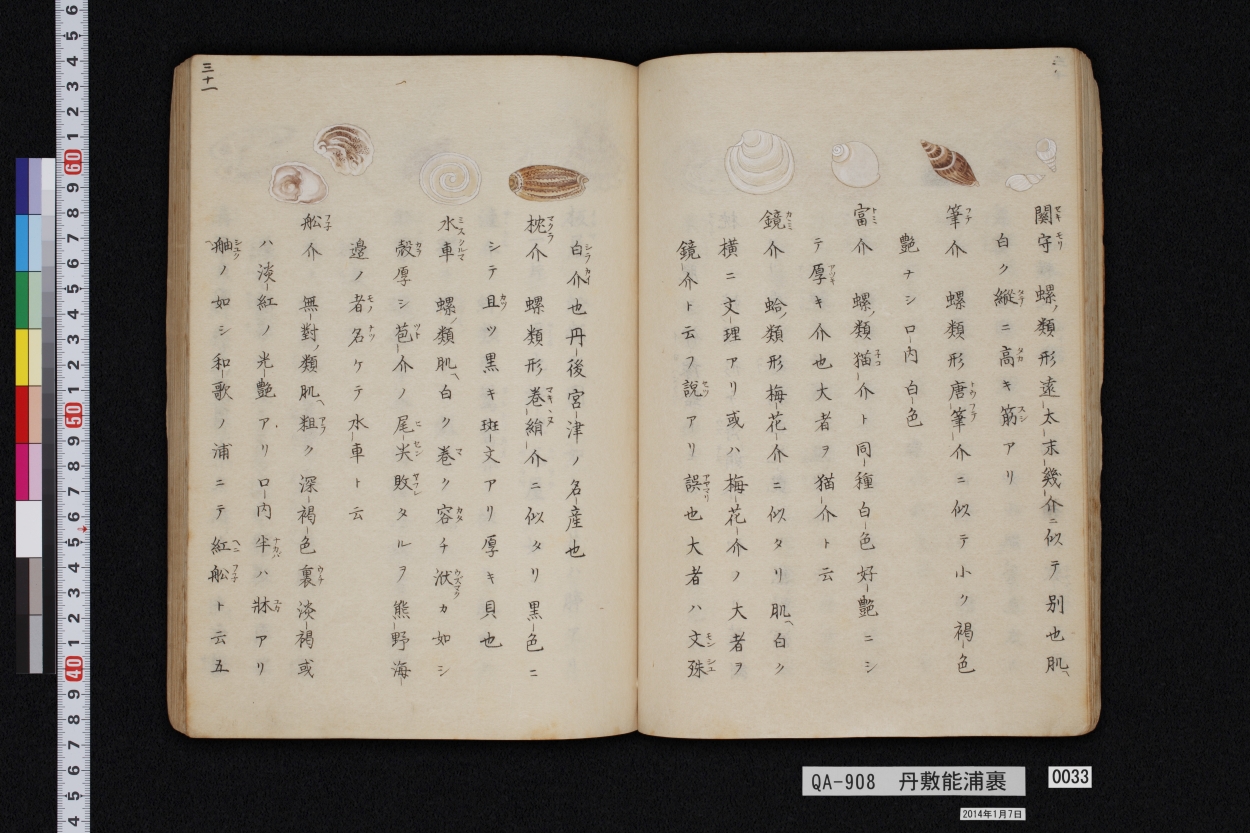 關守 螺ノ類形遠太末幾介ニ似テ別也肌ヘ
白ク縱ニ高キ筋アリ
筆介 螺類形唐筆介ニ似テ小ク褐色
艶ナシ口内白色
富介 螺ノ類猫介ト同種白色好艶ニシ
テ厚キ介也大者ヲ猫介ト云
鏡介 蛤ノ類形梅花介ニ似タリ肌ヘ白ク
横ニ文理アリ或ハ梅花介ノ大者ヲ
鏡介ト云フ説アリ誤也大者ハ文殊
白介也丹後宮津ノ名産也
枕介 螺類形巻絹介ニ似タリ黒色ニ
シテ且ツ黒キ斑文アリ厚キ貝也
水車 螺ノ類肌ヘ白ク巻ク容チ洑カ如シ
殻厚シ苞介ノ尾尖敗タルヲ熊野海
邉ノ者名ケテ水車ト云
舩介 無對ノ類肌ヘ粗ク深褐色裏淡褐或
ハ淡紅ノ光艶アリ口内半ハ牀アリ
舳ノ如シ和歌ノ浦ニテ紅舩ト云五
三十一
QA-908 丹敷能浦裹
0033
2014年1月7日